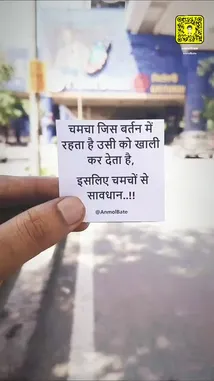 चमचा जिस बर्तन में
रहता है उसी को खाली
कर देता है,
इसलिए चमचों से
सावधान..!!
@AnmolBate